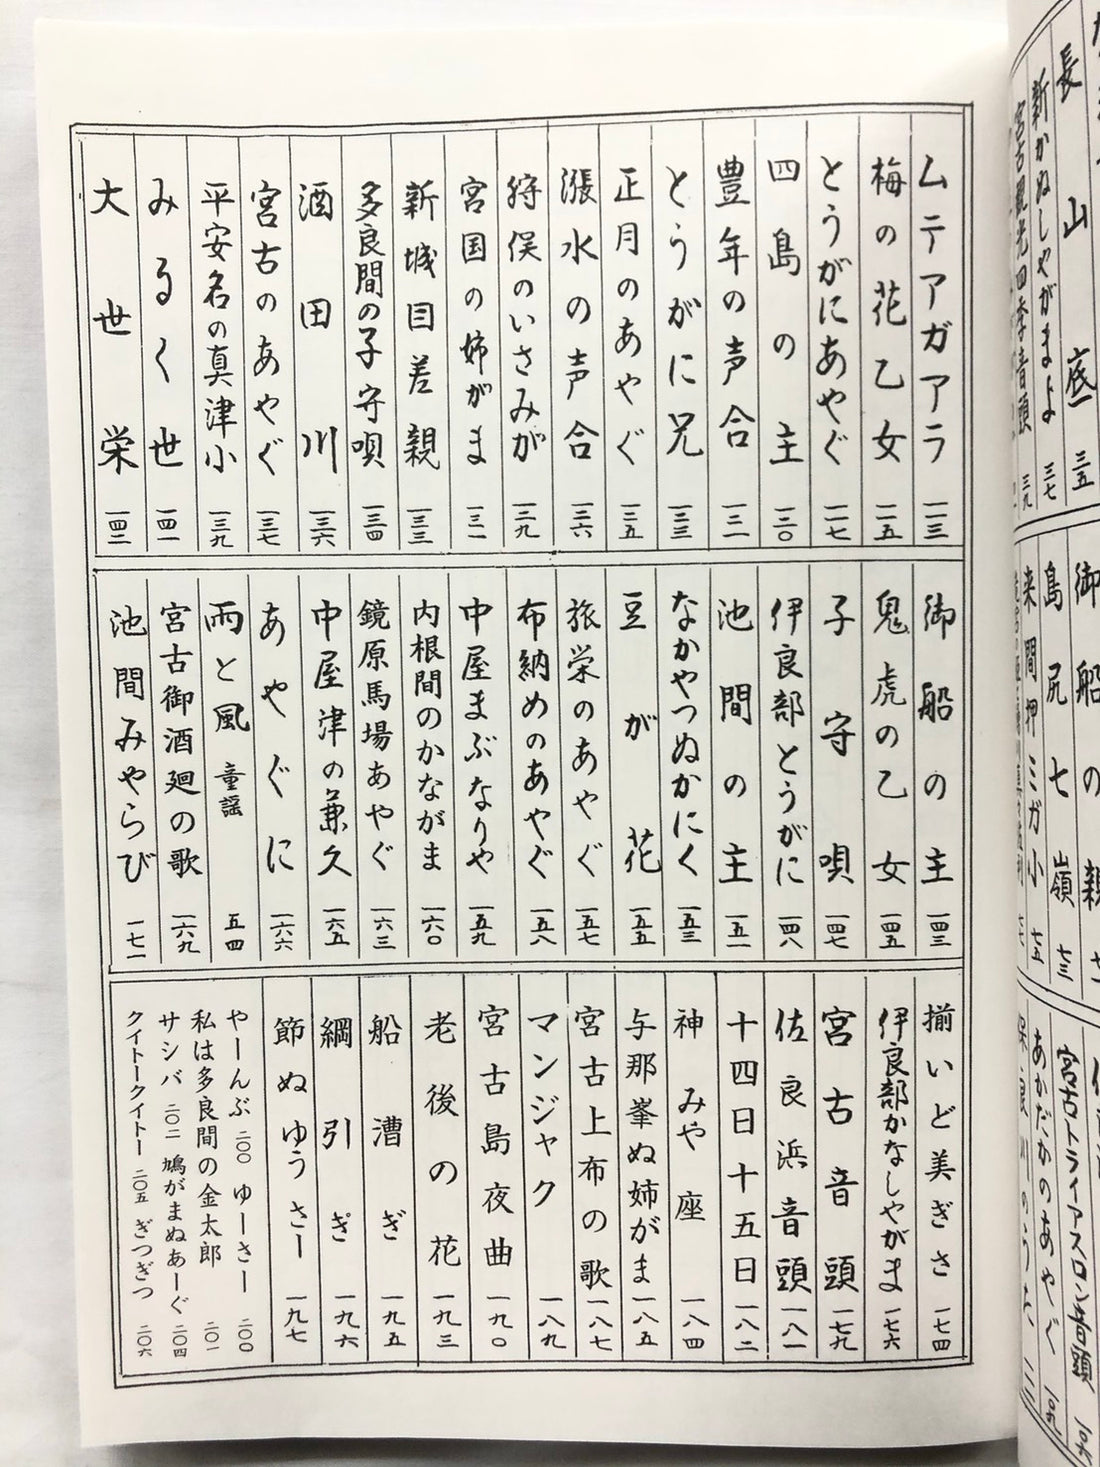 ムテアガアラ 一一三
梅の花乙女 一一五
とうがにあやぐ 一一七
四島の主 一二〇
豊年の声合 一二一
とうがに兄 一二三
正月のあやぐ 一二五
漲水の声合 一二六
狩俣のいさみが 一二九
宮国の姉がま 一三一
新城目差親 一三三
多良間の子守唄 一三四
酒田川 一三六
宮古のあやぐ 一三七
平安名の真津小 一三九
みるく世 一四一
大世栄 一四二
御船の主 一四三
鬼虎の乙女 一四五
子守唄 一四七
伊良部とうがに 一四八
池間の主 一五一
なかやつぬかにく 一五三
豆が花 一五五
旅栄のあやぐ 一五七
布納めのあやぐ 一五八
中屋まぶなりや 一五九
内根間のかながま 一六〇
鏡原馬場あやぐ 一六三
中屋津の兼久 一六五
あやぐに 一六六
雨と風 童謡 五四
宮古御酒廻の歌 一六九
池間みやらび 一七一
揃いど美ぎさ 一七四
伊良部かなしやがま 一七六
宮古音頭 一七九
佐良浜音頭 一八一
十四日十五日 一八二
神みや座 一八四
与那峯ぬ姉がま 一八五
宮古上布の歌 一八七
マンジャク 一八九
宮古島夜曲 一九〇
老後の花 一九三
船漕ぎ 一九五
綱引ぎ 一九六
節ぬゆうさー 一九七
やーんぶ 二〇〇 ゆーさー 二〇〇
私は多良間の金太郎 二〇一
サシバ 二〇二 鳩がまぬあーぐ 二〇四
クイトークイトー 二〇五 ぎつぎつ 二〇六
長山底 三五
新かぬしやがまよ 三七
宮古観光四季音頭 三九
御船の親
島尻七嶺 七三
来間押ミガ小 七五
宮古トライアスロン音頭
あかだかのあやぐ